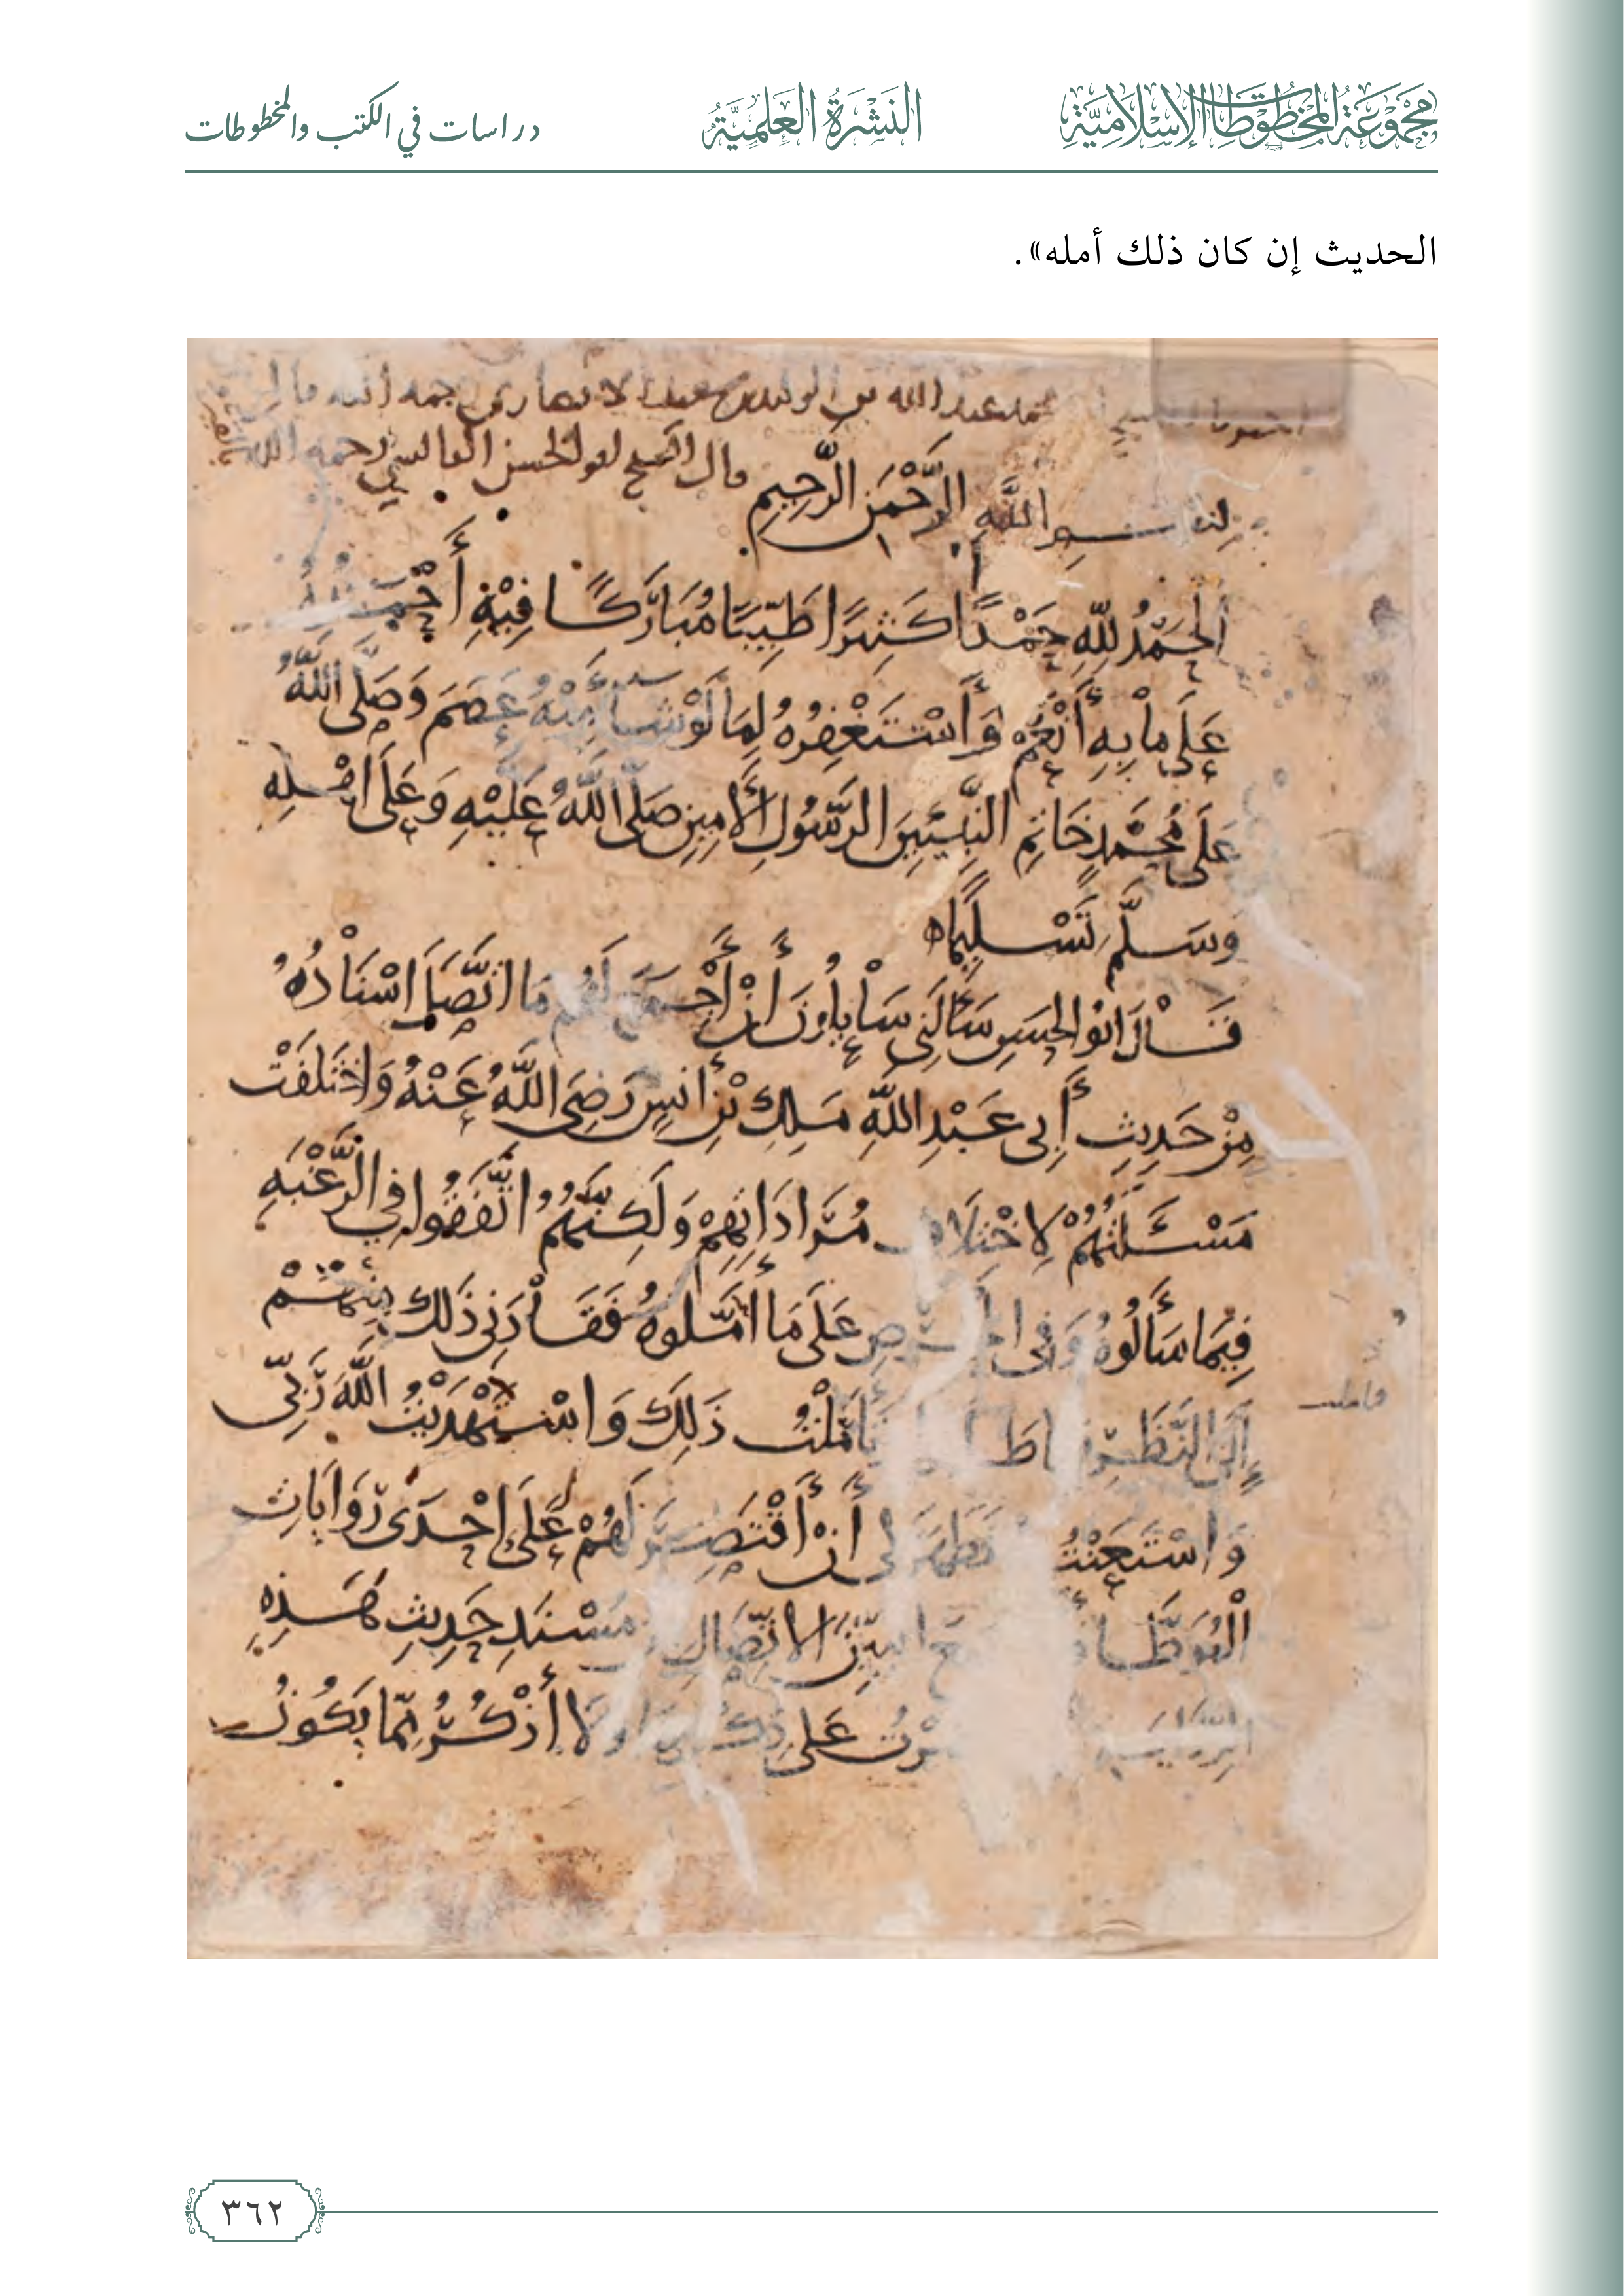 مجموعة المخطوطات الإسلامية
النشرة العلمية
دراسات في الكتب والمخطوطات
الحديث إن كان ذلك أمله».
عبد الله بن الوليد بن سعد الانصاري رحمه الله قال
قال الشيخ ابو الحسن القابسي رحمه الله
بسم الله الرَّحْمَنِ الرَّحِيمِ
اَلْحَمْدُ لِلَّهِ حَمْدًا كَثِيرًا طَيِّبًا مُبَارَكًا فِيْهِ أَحْمَدُهُ
عَلَى مَا بِهِ أَنْعَمَ وَأَسْتَغْفِرُهُ لِمَا لَوْ شَا مِنْهُ عَصَمَ وَصَلَّى اللَّهُ
عَلَى مُحَمَّدٍ خَاتِمِ النَّبِيِّينَ الرَّسُولِ الأَمِينِ صَلَّى اللَّهُ عَلَيْهِ وَعَلَى اهْلِهِ
وسَلَّمَ تَسْلِيمًا ه
قَالَ ابُو الحسَنِ سَأَلَنِي سَايِلُونَ انْ أَجْمَعَ لَهُم مَا اتَّصَلَ اسْنَادُهُ
مِنْ حَدِيثِ أَبِي عَبْدِ اللَّهِ مَلِكِ بْنِ أنسٍ رَضِيَ اللَّهُ عَنْهُ وَاخْتَلَفَتْ
مَسْئَلَتُهُمْ لِاخْتِلَافِ مُرَادَاتِهِمْ وَلَكِنَّهُمُ اتَّفَقُوا فِي الرَّغْبَةِ
فِيمَا سَأَلُوهُ وَفِي الحرصِ عَلَى مَا امَّلُوهُ فَقَادَنِي ذَلِكَ مِنْهُمْ
إِلَى النَّظَرِ تَأَمَّلْتُ ذَلِكَ وَاسْتَهْدَيْتُ اللَّهَ رَبِّي
فاملت
وَاسْتَعَنْتُهُ فَظَهَرَ لِي أَنْ أَقْتَصِرَ لَهُمْ عَلَى احْدَى رِوَايَاتِ
الْمُوَطَّأ بَيِّنَ الاتِّصَالِ مُسْنَدِ حَدِيثِ هَذِهِ
عَلَى أَذْكُرُ مِمَّا يَكُونُ
٣٦٢